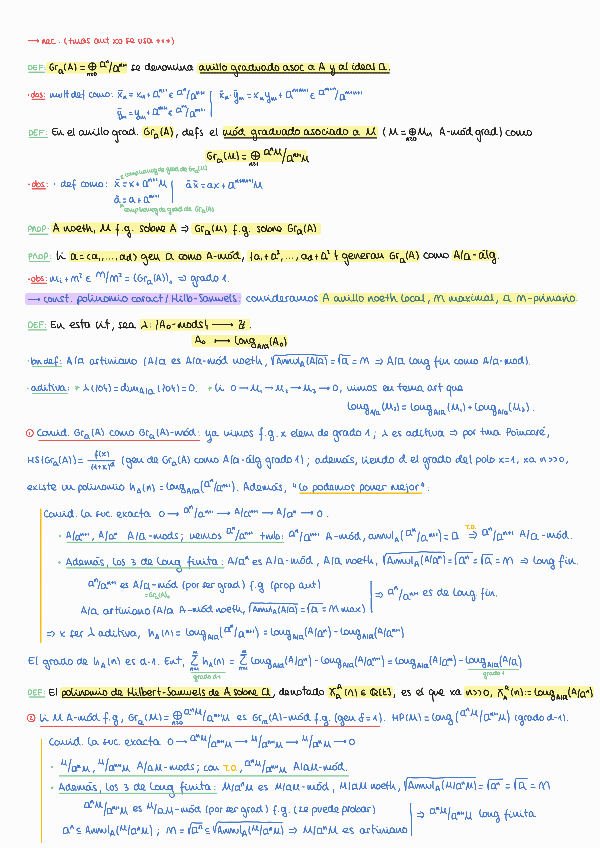 → rec. (tmas ant xo se usa +++)
DEF: Gr_a(A) = ⊕_{n≥0} a^n/a^{n+1} se denomina anillo graduado asoc a A y al ideal a.
·obs: mult def como: x̄_n = x_n + a^{n+1} ∈ a^n/a^{n+1} | x̄_n·ȳ_m = x_n y_m + a^{n+m+1} ∈ a^{n+m}/a^{n+m+1}
ȳ_m = y_m + a^{m+1} ∈ a^m/a^{m+1}
DEF: En el anillo grad. Gr_a(A), defs el mód graduado asociado a M (M = ⊕_{n≥0} M_n A-mód grad) como
Gr_a(M) = ⊕_{n≥1} a^nM/a^{n+1}M
componente de grad de Gr_a(M)
·obs: · def como: x̄ = x + a^{n+1}M | ā x̄ = ax + a^{n+m+1}M
ā = a + a^{m+1}
componente de grado de Gr_a(A)
PROP: A noeth, M f.g. sobre A ⇒ Gr_a(M) f.g. sobre Gr_a(A)
PROP: Si a = (a₁,...,a_d) gen a como A-mód, {a₁+a²,...,a_d+a²} generan Gr_a(A) como A/a-álg.
·obs: m_i + m² ∈ m/m² = (Gr_a(A))₁ ⇒ grado 1.
→ const. polinomio caract/Hilb-Samuels: consideramos A anillo noeth local, m maximal, a m-primario.
DEF: En esta sit, sea λ: {A₀-mods} → ℤ.
A₀ ↦ long_{A/a}(A₀)
·bien def: A/a artiniano (A/a es A/a-mód noeth, √Annul_A(A/a) = √a = m ⇒ A/a long fin como A/a-mod).
·aditiva: * λ({0}) = dim_{A/a}({0}) = 0. * Si 0 → M₁ → M₂ → M₃ → 0, vimos en tema art que
long_{A/a}(M₂) = long_{A/a}(M₁) + long_{A/a}(M₃).
① Consid. Gr_a(A) como Gr_a(A)-mód: ya vimos f.g. x elem de grado 1; λ es aditiva ⇒ por tma Poincaré,
HS(Gr_a(A)) = f(x)/(1+x)^d (gen de Gr_a(A) como A/a-álg grado 1); además, siendo d el grado del polo x=1, xa n>>0,
existe un polinomio h_A(n) = long_{A/a}(a^n/a^{n+1}). Además, "lo podemos poner mejor".
Consid. la suc. exacta 0 → a^n/a^{n+1} → A/a^{n+1} → A/a^n → 0.
· A/a^{n+1}, A/a^n A/a-mods; vemos a^n/a^{n+1} tmb: a^n/a^{n+1} A-mód, annul_A(a^n/a^{n+1}) = a ⇒ a^n/a^{n+1} A/a-mód.
T.O.
· Además, los 3 de long finita: A/a^n es A/a-mód, A/a noeth, √Annul_A(A/a^n) = √a^n = √a = m ⇒ long fin.
a^n/a^{n+1} es A/a-mód (por ser grad) f.g (prop aut) | ⇒ a^n/a^{n+1} es de long fin.
=Gr_a(A)_n
A/a artiniano (A/a A-mód noeth, √Annul_A(A/a) = √a = m max)
⇒ x ser λ aditiva, h_A(n) = long_{A/a}(a^n/a^{n+1}) = long_{A/a}(A/a^{n+1}) - long_{A/a}(A/a^n)
El grado de h_A(n) es d-1. Ent, Σ h_A(n) = Σ long_{A/a}(A/a^{n+1}) - long_{A/a}(A/a^n) = long_{A/a}(A/a^{m+1}) - long_{A/a}(A/a)
grado d-1 grado 1
DEF: El polinomio de Hilbert-Samuels de A sobre a, denotado χ_a^A(n) ∈ Q[t], es el que xa n>>0, χ_a^A(n) := long_{A/a}(A/a^n)
② Si M A-mód f.g, Gr_a(M) = ⊕_{n≥0} a^nM/a^{n+1}M es Gr_a(A)-mód f.g. (gen δ=1). HP(M) = long(a^nM/a^{n+1}M) (grado d-1).
Consid. la suc. exacta 0 → a^nM/a^{n+1}M → M/a^{n+1}M → M/a^nM → 0
· M/a^nM, M/a^{n+1}M A/a-mods; con T.O, a^nM/a^{n+1}M A/a-mód.
· Además, los 3 de long finita: M/a^nM es M/aM-mód, M/aM noeth, √Annul_A(M/a^nM) = √a^n = √a = m
a^nM/a^{n+1}M es M/aM-mód (por ser grad) f.g. (se puede probar) | ⇒ a^nM/a^{n+1}M long finita
a^n ⊆ Annul_A(M/a^nM); m = √a^n ⊆ √Annul_A(M/a^nM) ⇒ M/a^nM es artiniano